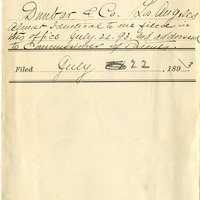 Dunbar & Co. Los Angeles
Against Identical to one filed in
this office July. 22. 93. and addressed
to Commissioner of Patents.
Filed July 22, 1893